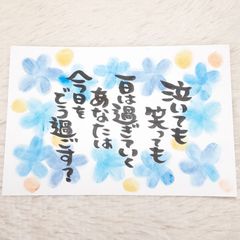 泣いても
笑っても
一日は過ぎていく
あなたは
今日を
どう過ごす？